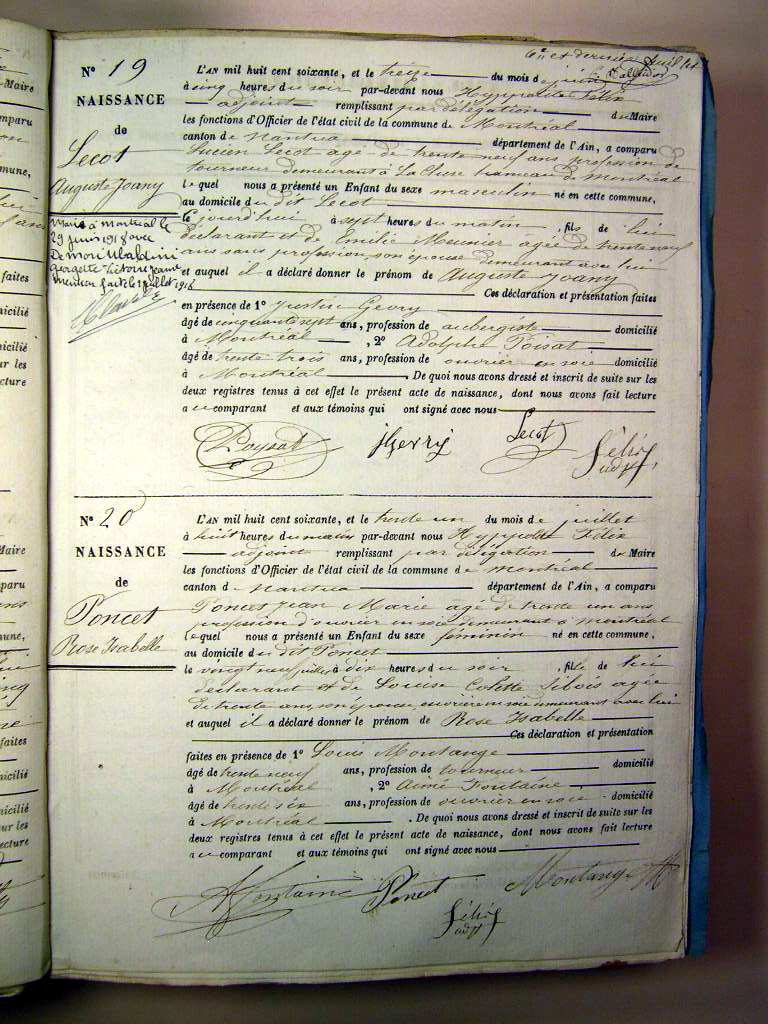 6e et dernier feuillet
N° 19
NAISSANCE
de
Lecot
Auguste Joany
Marié à Montréal le
29 juin 1918 avec
georgette Victoire Jeanne
mention faite le juillet 1918
L'AN mil huit cent soixante, et le treize du mois de
à cinq heures du soir par-devant nous Hyppolite Félix
adjoint remplissant par délégation du Maire
les fonctions d'Officier de l'état civil de la commune de Montréal
canton de Nantua département de l'Ain, a comparu
Lucien Lecot agé de trente neuf ans profession de
tourneur demeurant à La Cluse hameau de Montréal
lequel nous a présenté un Enfant du sexe masculin né en cette commune,
au domicile du dit Lecot
le jourd'hui à sept heures du matin, fils de lui
déclarant et de Emilie Meunier agée de trente neuf
ans sans profession, son épouse demeurant avec lui
et auquel il a déclaré donner le prénom de Auguste Joany
Ces déclaration et présentation faites
en présence de 1° Justin Gevry
âgé de cinquante sept ans, profession de aubergiste domicilié
à Montréal, 2° Adolphe Poisat
âgé de trente trois ans, profession de ouvrier en soie domicilié
à Montréal. De quoi nous avons dressé et inscrit de suite sur les
deux registres tenus à cet effet le présent acte de naissance, dont nous avons fait lecture
au comparant et aux témoins qui ont signé avec nous
Poysat JGevry Lecot Félix
adjt
N° 20
NAISSANCE
de
Poncet
Rose Isabelle
L'AN mil huit cent soixante, et le trente un du mois de juillet
à huit heures du matin par-devant nous Hyppolite Félix
adjoint remplissant par délégation du Maire
les fonctions d'Officier de l'état civil de la commune de Montréal
canton de Nantua département de l'Ain, a comparu
Poncet Jean Marie agé de trente un ans
profession d'ouvrier en soie demeurant à Montréal
lequel nous a présenté un Enfant du sexe féminin né en cette commune,
au domicile du dit Poncet
le vingt neuf juillet à dix heures du soir, fille de lui
déclarant et de Louise Colette Sibois agée
de trente ans, son épouse, ouvrière en soie demeurant avec lui
et auquel il a déclaré donner le prénom de Rose Isabelle
Ces déclaration et présentation
faites en présence de 1° Louis Montange
âgé de trente neuf ans, profession de tourneur domicilié
à Montréal, 2° Aimé Fontaine
âgé de trente six ans, profession de ouvrier en soie domicilié
à Montréal. De quoi nous avons dressé et inscrit de suite sur les
deux registres tenus à cet effet le présent acte de naissance, dont nous avons fait lecture
au comparant et aux témoins qui ont signé avec nous
A Fontaine Poncet Montange
Félix
adjt